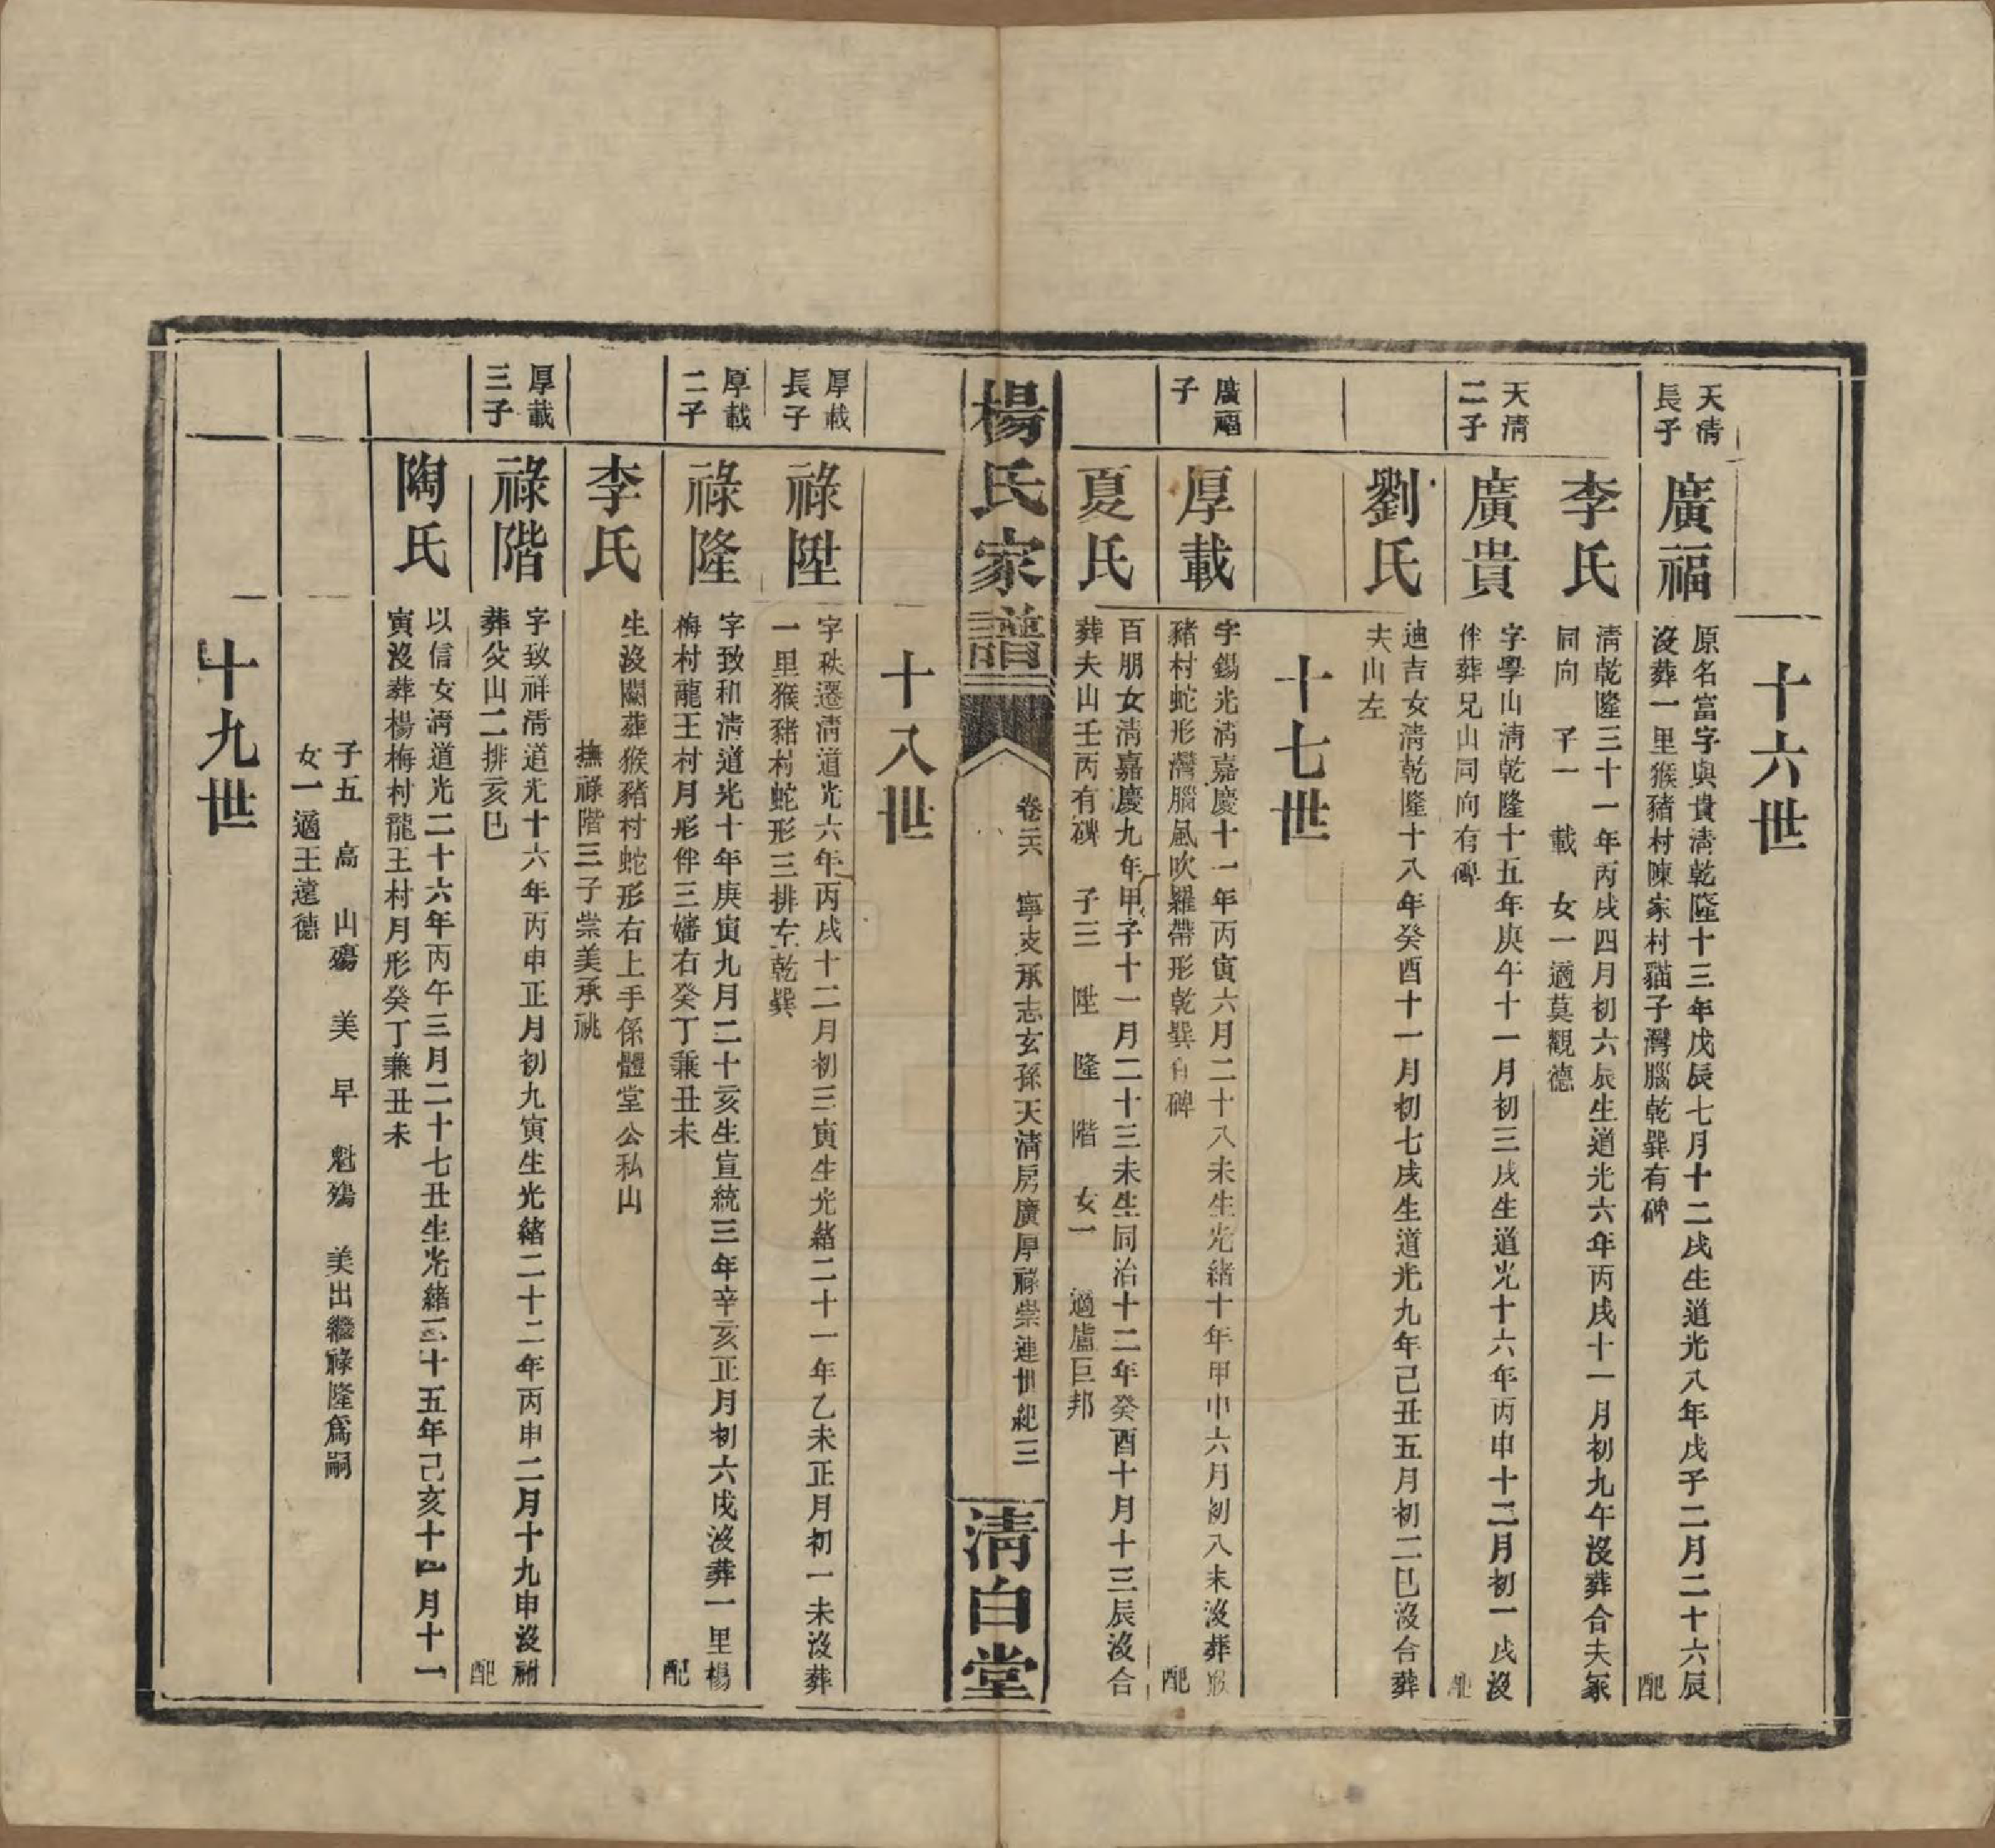 十六世
天清
長子
廣福
原名富字與貴清乾隆十三年戊辰七月十二戌生道光八年戊子二月二十六辰
沒葬一里猴豬村陳家村貓子灣腦乾巽有碑
配
李氏
清乾隆三十一年丙戌四月初六辰生道光六年丙戌十一月初九午沒葬合夫冢
同向 子一 載 女一適莫觀德
天清
二子
廣貴
字學山清乾隆十五年庚午十一月初三戌生道光十六年丙申十二月初一戌沒
伴葬兄山同向有碑
配
劉氏
迪吉女清乾隆十八年癸酉十一月初七戌生道光九年己丑五月初二巳沒合葬
夫山左
十七世
廣福
子
厚載
字錫光清嘉慶十一年丙寅六月二十八未生光緒十年甲申六月初八未沒葬猴
豬村蛇形灣腦風吹羅帶形乾巽有碑
配
夏氏
百朋女清嘉慶九年甲子十一月二十三未生同治十二年癸酉十月十三辰沒合
葬夫山壬丙有碑 子三 陞 隆 階 女一 適盧巨邦
楊氏家譜
卷二六 寧支承志玄孫天清房廣厚祿崇連世紀三
清白堂
十八世
厚載
長子
祿陞
字秩遷清道光六年丙戌十二月初三寅生光緒二十一年乙未正月初一未沒葬
一里猴豬村蛇形三排左乾巽
厚載
二子
祿隆
字致和清道光十年庚寅九月二十亥生宣統三年辛亥正月初六戌沒葬一里楊
梅村龍王村月形伴三嬸右癸丁兼丑未
配
李氏
生沒闕葬猴豬村蛇形右上手係體堂公私山
撫祿階三子崇美承祧
厚載
三子
祿階
字致祥清道光十六年丙申正月初九寅生光緒二十二年丙申二月十九申沒祔
葬父山二排亥巳
配
陶氏
以信女清道光二十六年丙午三月二十七丑生光緒二十五年己亥十一月十一
寅沒葬楊梅村龍王村月形癸丁兼丑未
子五 高 山殤 美 早 魁殤 美出繼祿隆爲嗣
女一適王達德
十九世